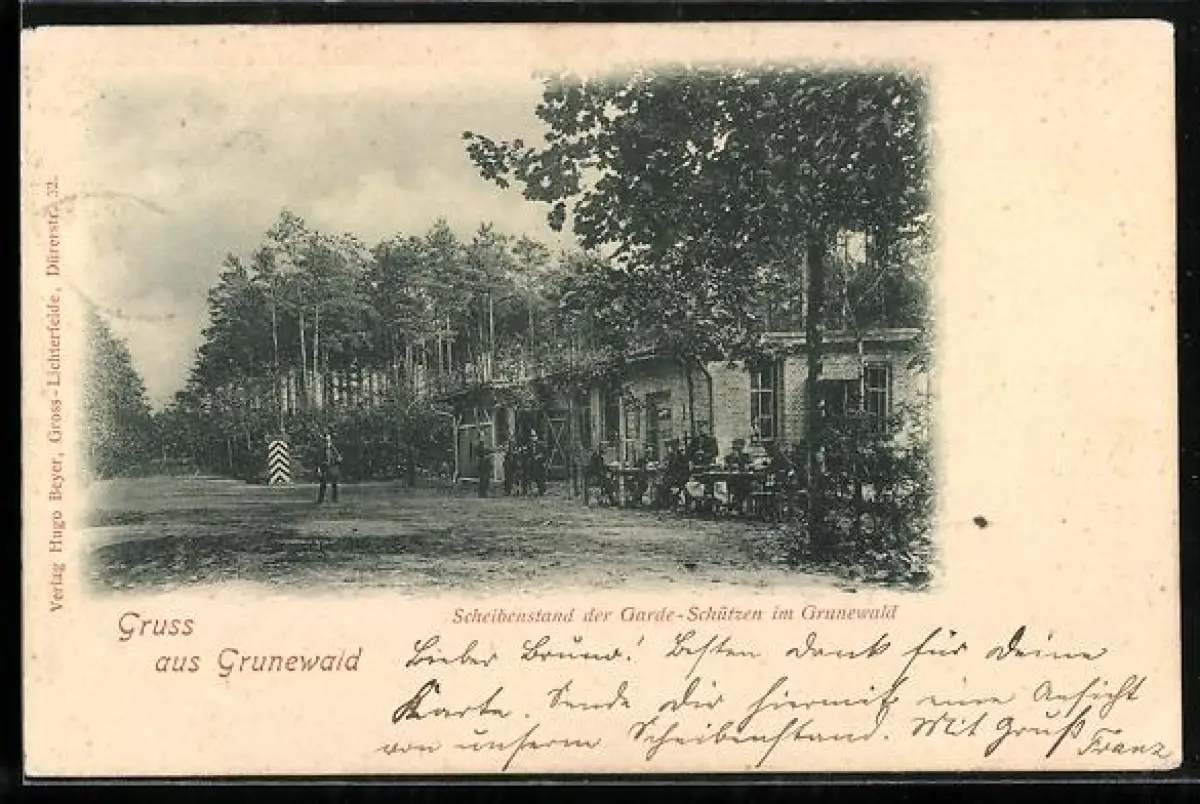 Verlag Hugo Beyer, Gross-Lichterfelde, Dürerstr. 32.
Scheibenstand der Garde-Schützen im Grunewald
Gruss
aus Grunewald
Lieber Bruno! Besten Dank für Deine
Karte. Sende Dir hiermit eine Ansicht
von unserm Scheibenstand. Mit Gruß Franz